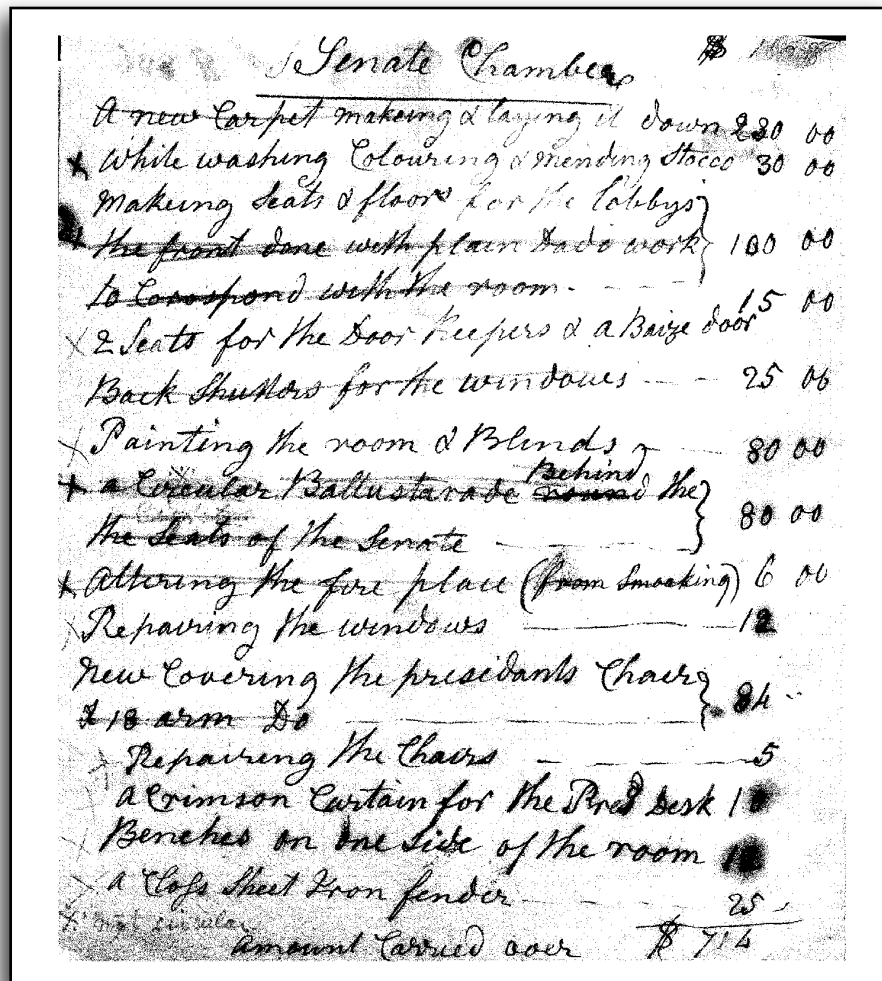 Senate Chamber $
A new Carpet makeing & laying it down 230 00
x While washing Colouring & mending Stocco 30 00
Makeing Seats & floors for the lobbys
the front done with plain Dado work 100 00
to Corospond with the room
x 2 Seats for the Door Keepers & a Baize door 15 00
Back Shutters for the windows 25 00
x Painting the room & Blends 80 00
Behind
x a Circular Ballustarade round the
the Seats of the Senate 80 00
x Altering the fire place (from Smoaking) 6 00
x Repairing the windows 12
New Covering the presidants Chair
& 18 arm Do 84
Repairing the Chairs 5
a Crimson Curtain for the Pred Desk 10
Benches on one side of the room 12
a Closs Sheet Iron fender 25
amount Carried over $ 714